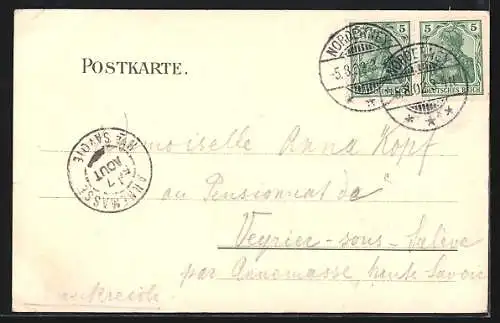 5 5
NORDERNEY
-5.8.02
NORDERNEY
5.8.02
DEUTSCHES REICH
POSTKARTE.
ANNEMASSE
7
AOUT
HTE SAVOIE
Mademoiselle Anna Kopf
au Pensionnat de
Veyrier-sous-Salève
par Annemasse, haute Savoie